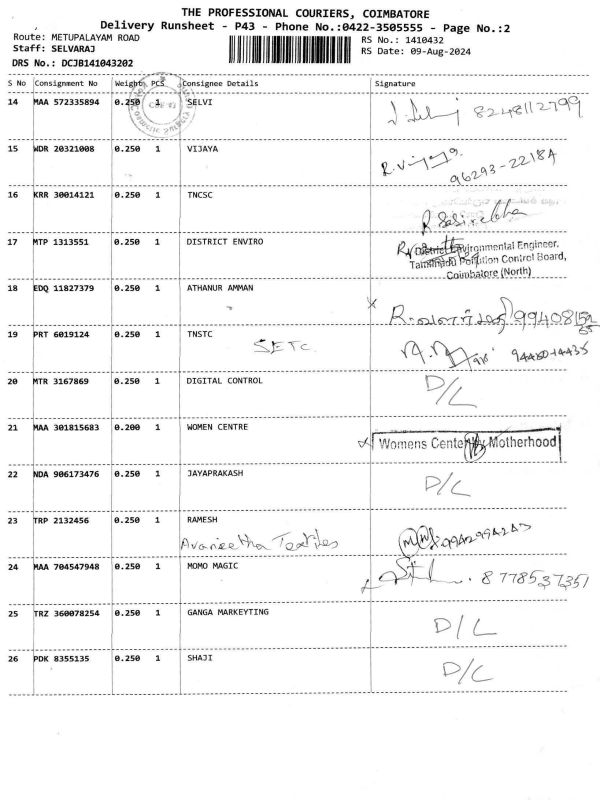 THE PROFESSIONAL COURIERS, COIMBATORE
Delivery Runsheet - P43 - Phone No.:0422-3505555 - Page No.:2
Route: METUPALAYAM ROAD RS No.: 1410432
Staff: SELVARAJ RS Date: 09-Aug-2024
DRS No.: DCJB141043202
S No Consignment No Weight PCS Consignee Details Signature
14 MAA 572335894 0.250 1 SELVI 8248112799
15 WDR 20321008 0.250 1 VIJAYA R.Vijaya 96293-22184
16 KRR 30014121 0.250 1 TNCSC R Sasirekha
17 MTP 1313551 0.250 1 DISTRICT ENVIRO District Environmental Engineer.
Tamilnadu Pollution Control Board,
Coimbatore (North)
18 EDQ 11827379 0.250 1 ATHANUR AMMAN R. வளர்மதி
19 PRT 6019124 0.250 1 TNSTC
SETC
20 MTR 3167869 0.250 1 DIGITAL CONTROL D/L
21 MAA 301815683 0.200 1 WOMEN CENTRE Womens Center Motherhood
22 NDA 906173476 0.250 1 JAYAPRAKASH D/L
23 TRP 2132456 0.250 1 RAMESH
Avaneetha Textiles
24 MAA 704547948 0.250 1 MOMO MAGIC 8778537351
25 TRZ 360078254 0.250 1 GANGA MARKEYTING D/L
26 PDK 8355135 0.250 1 SHAJI D/L